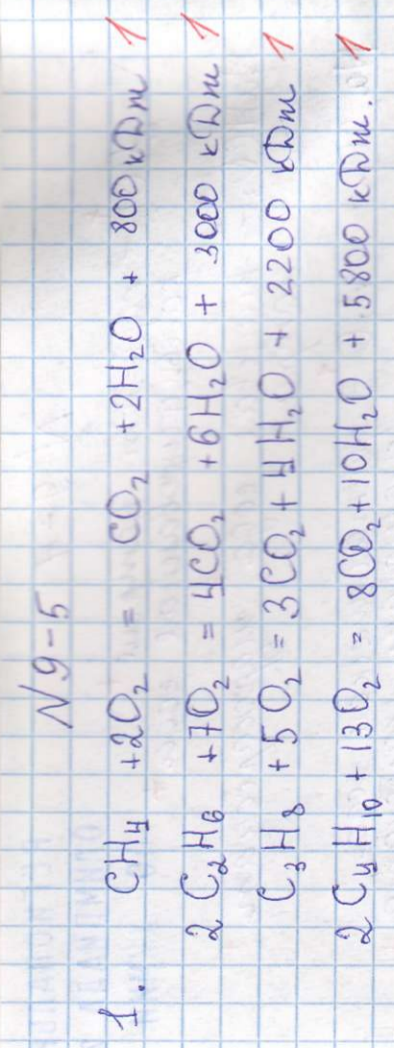 N 9-5
1. CH₄ + 2O₂ = CO₂ + 2H₂O + 800 кДж 1
2C₂H₆ + 7O₂ = 4CO₂ + 6H₂O + 3000 кДж 1
C₃H₈ + 5O₂ = 3CO₂ + 4H₂O + 2200 кДж 1
2C₄H₁₀ + 13O₂ = 8CO₂ + 10H₂O + 5800 кДж. 1